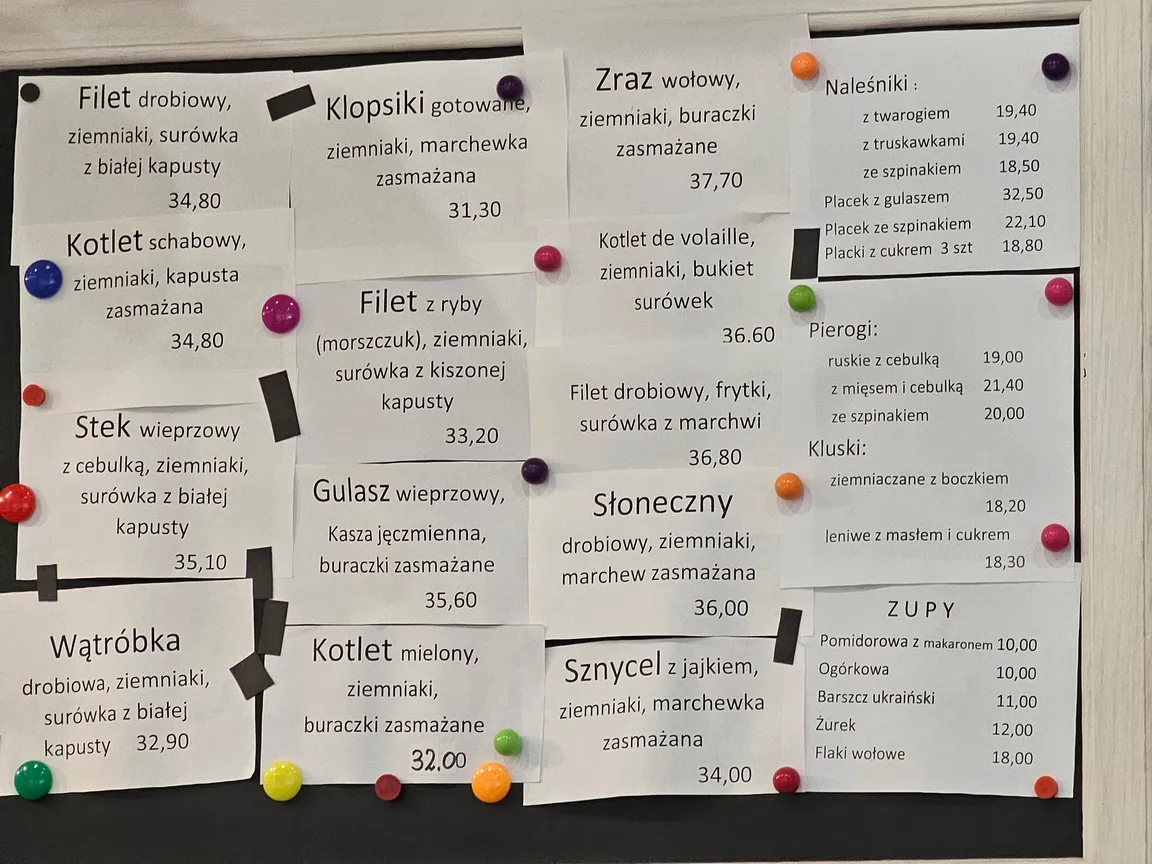 Filet drobiowy,
ziemniaki, surówka
z białej kapusty
34,80
Kotlet schabowy,
ziemniaki, kapusta
zasmażana
34,80
Stek wieprzowy
z cebulką, ziemniaki,
surówka z białej
kapusty
35,10
Wątróbka
drobiowa, ziemniaki,
surówka z białej
kapusty 32,90
Klopsiki gotowane,
ziemniaki, marchewka
zasmażana
31,30
Filet z ryby
(morszczuk), ziemniaki,
surówka z kiszonej
kapusty
33,20
Gulasz wieprzowy,
Kasza jęczmienna,
buraczki zasmażane
35,60
Kotlet mielony,
ziemniaki,
buraczki zasmażane
32.00
Zraz wołowy,
ziemniaki, buraczki
zasmażane
37,70
Kotlet de volaille,
ziemniaki, bukiet
surówek
36.60
Filet drobiowy, frytki,
surówka z marchwi
36,80
Słoneczny
drobiowy, ziemniaki,
marchew zasmażana
36,00
Sznycel z jajkiem,
ziemniaki, marchewka
zasmażana
34,00
Naleśniki :
z twarogiem 19,40
z truskawkami 19,40
ze szpinakiem 18,50
Placek z gulaszem 32,50
Placek ze szpinakiem 22,10
Placki z cukrem 3 szt 18,80
Pierogi:
ruskie z cebulką 19,00
z mięsem i cebulką 21,40
ze szpinakiem 20,00
Kluski:
ziemniaczane z boczkiem
18,20
leniwe z masłem i cukrem
18,30
ZUPY
Pomidorowa z makaronem 10,00
Ogórkowa 10,00
Barszcz ukraiński 11,00
Żurek 12,00
Flaki wołowe 18,00